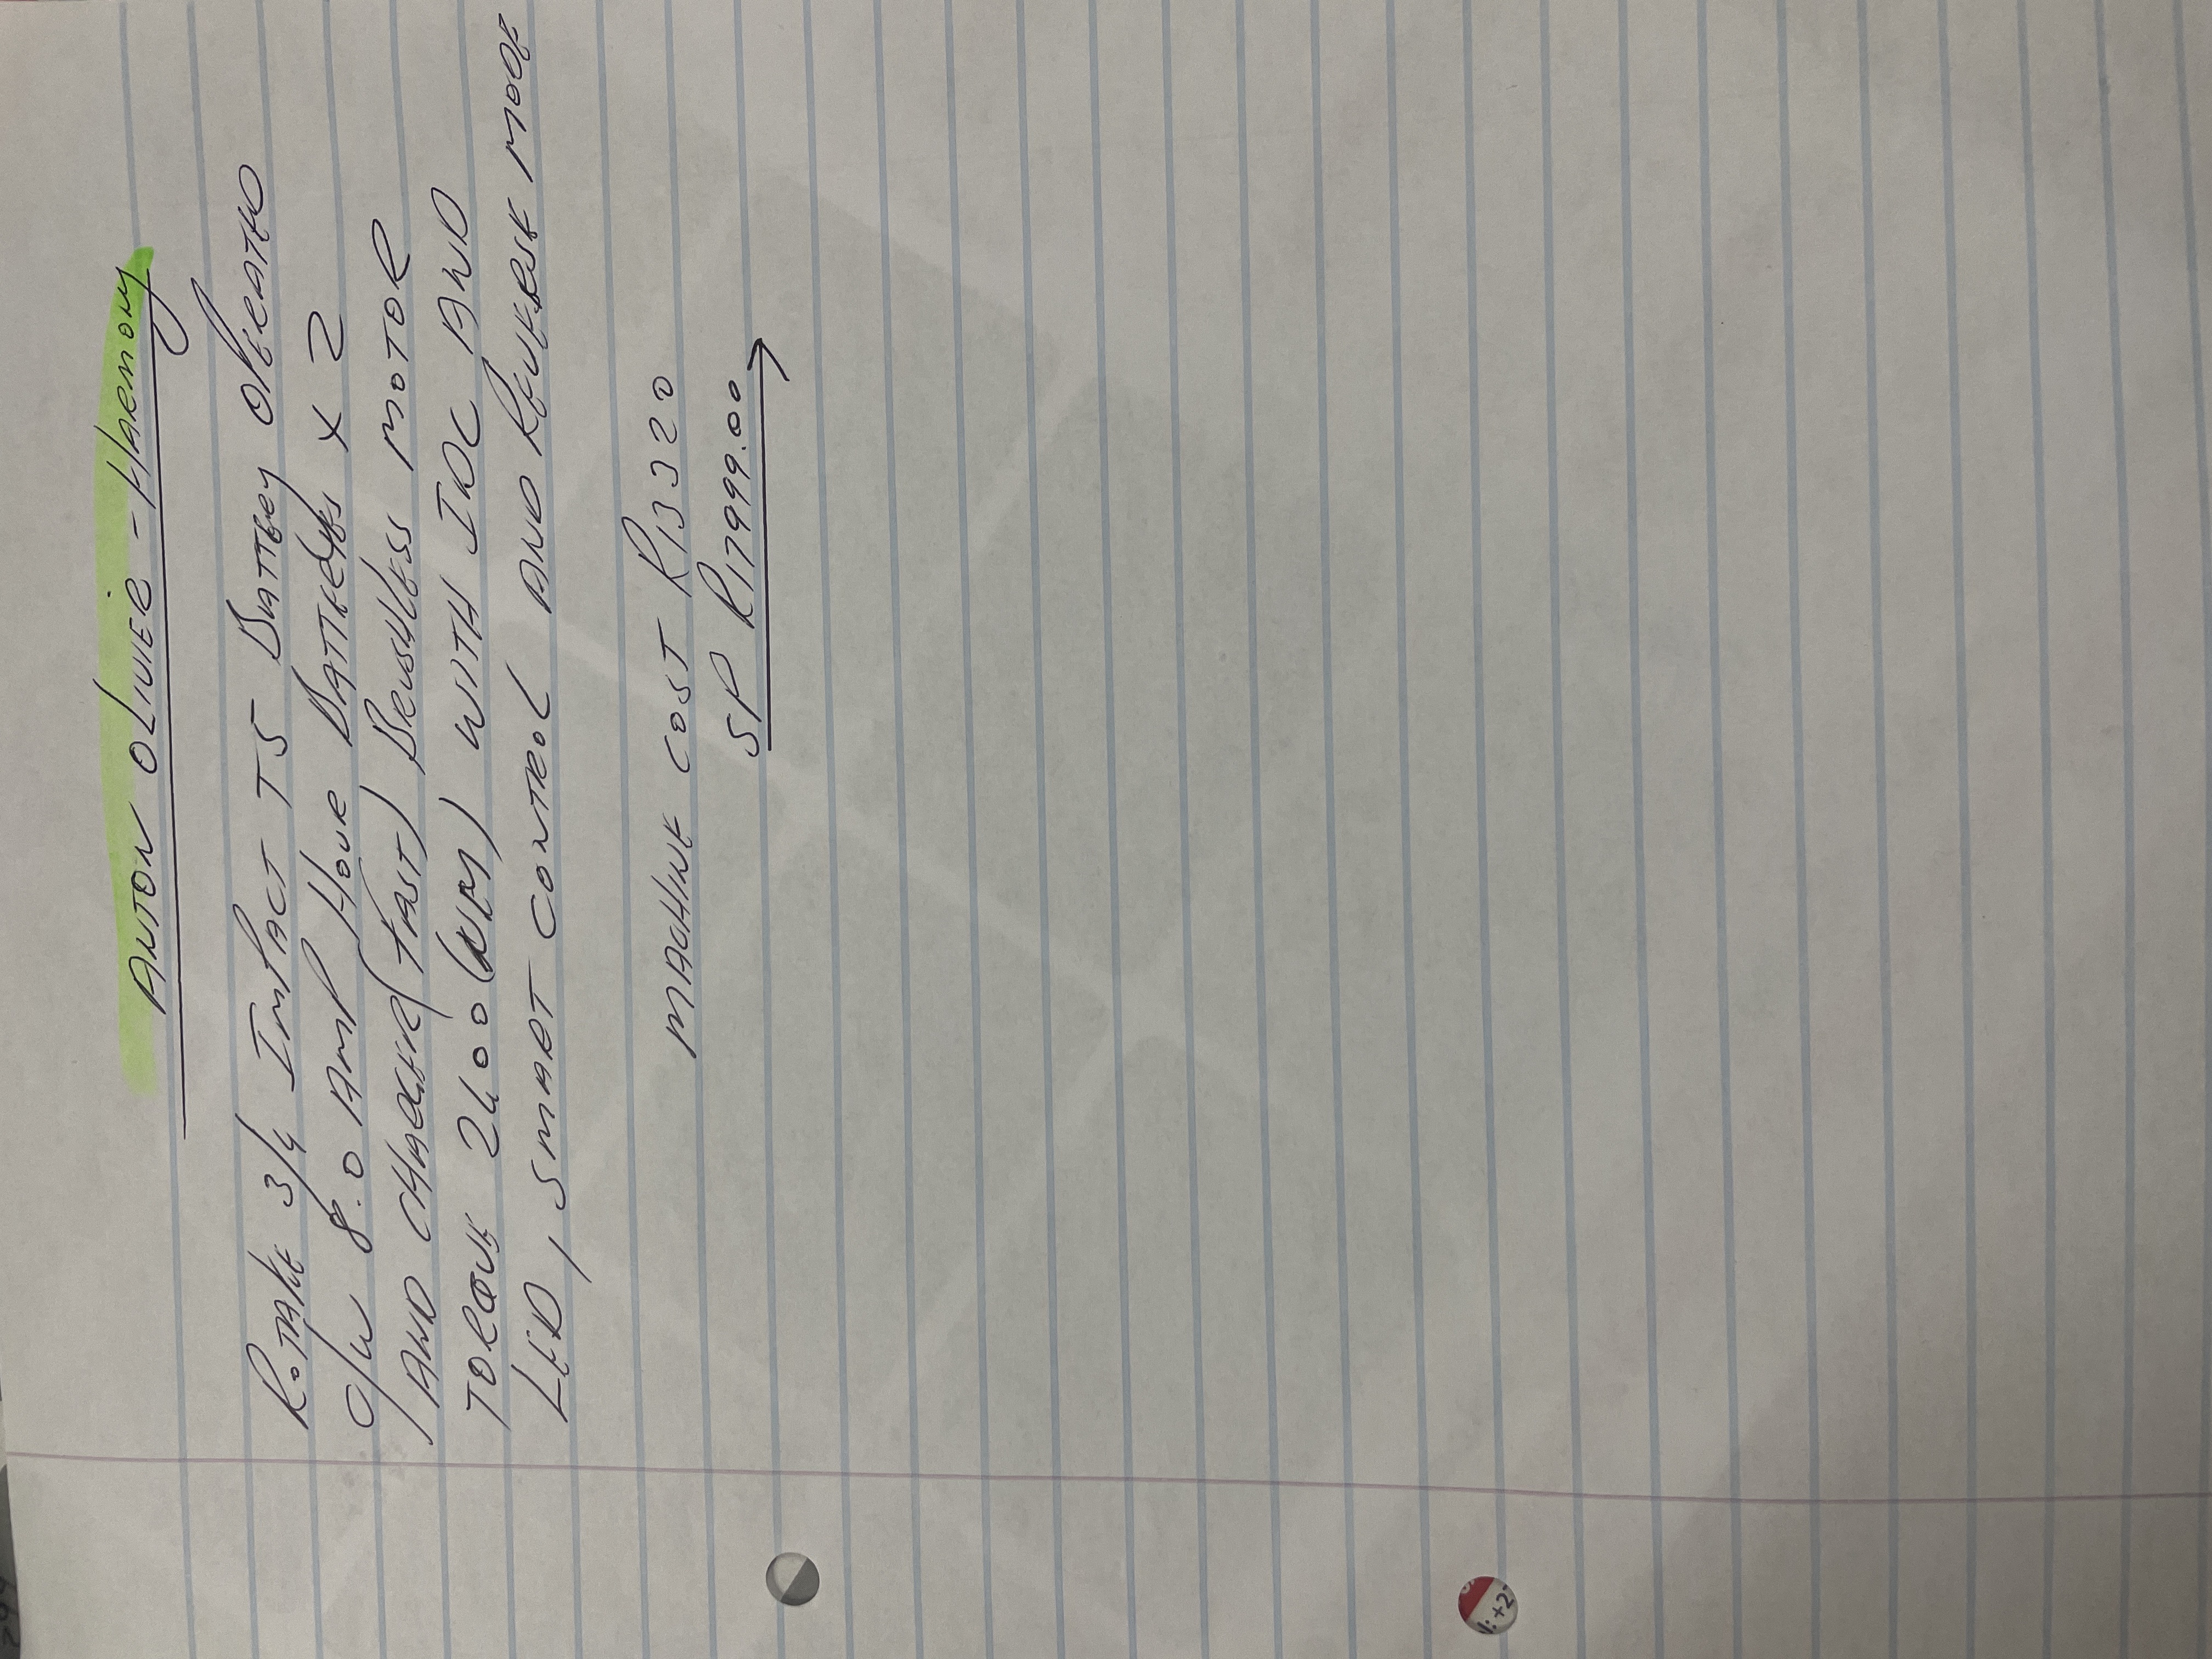 ANTON OLIVIER - HARMONY
ROTAKE 3/4 IMPACT T5 BATTERY OPERATED
C/W 8.0 AMP HOUR BATTERIES X 2
AND CHARGER (FAST) BRUSHLESS MOTOR
TORQUE 2400 (NM) WITH IDC AND
LED, SMART CONTROL AND REVERSE MODE
MACHINE COST R13320
SP R17999.00